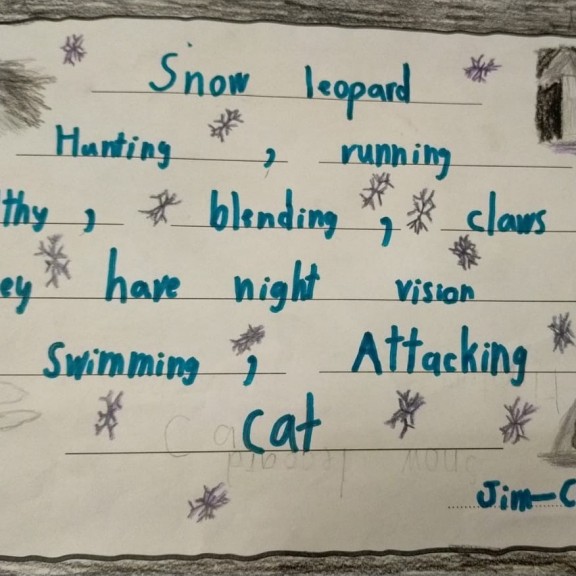 Snow leopard
Hunting , running
thy , blending , claws
ey have night vision
Swimming , Attacking
cat
Jim-C